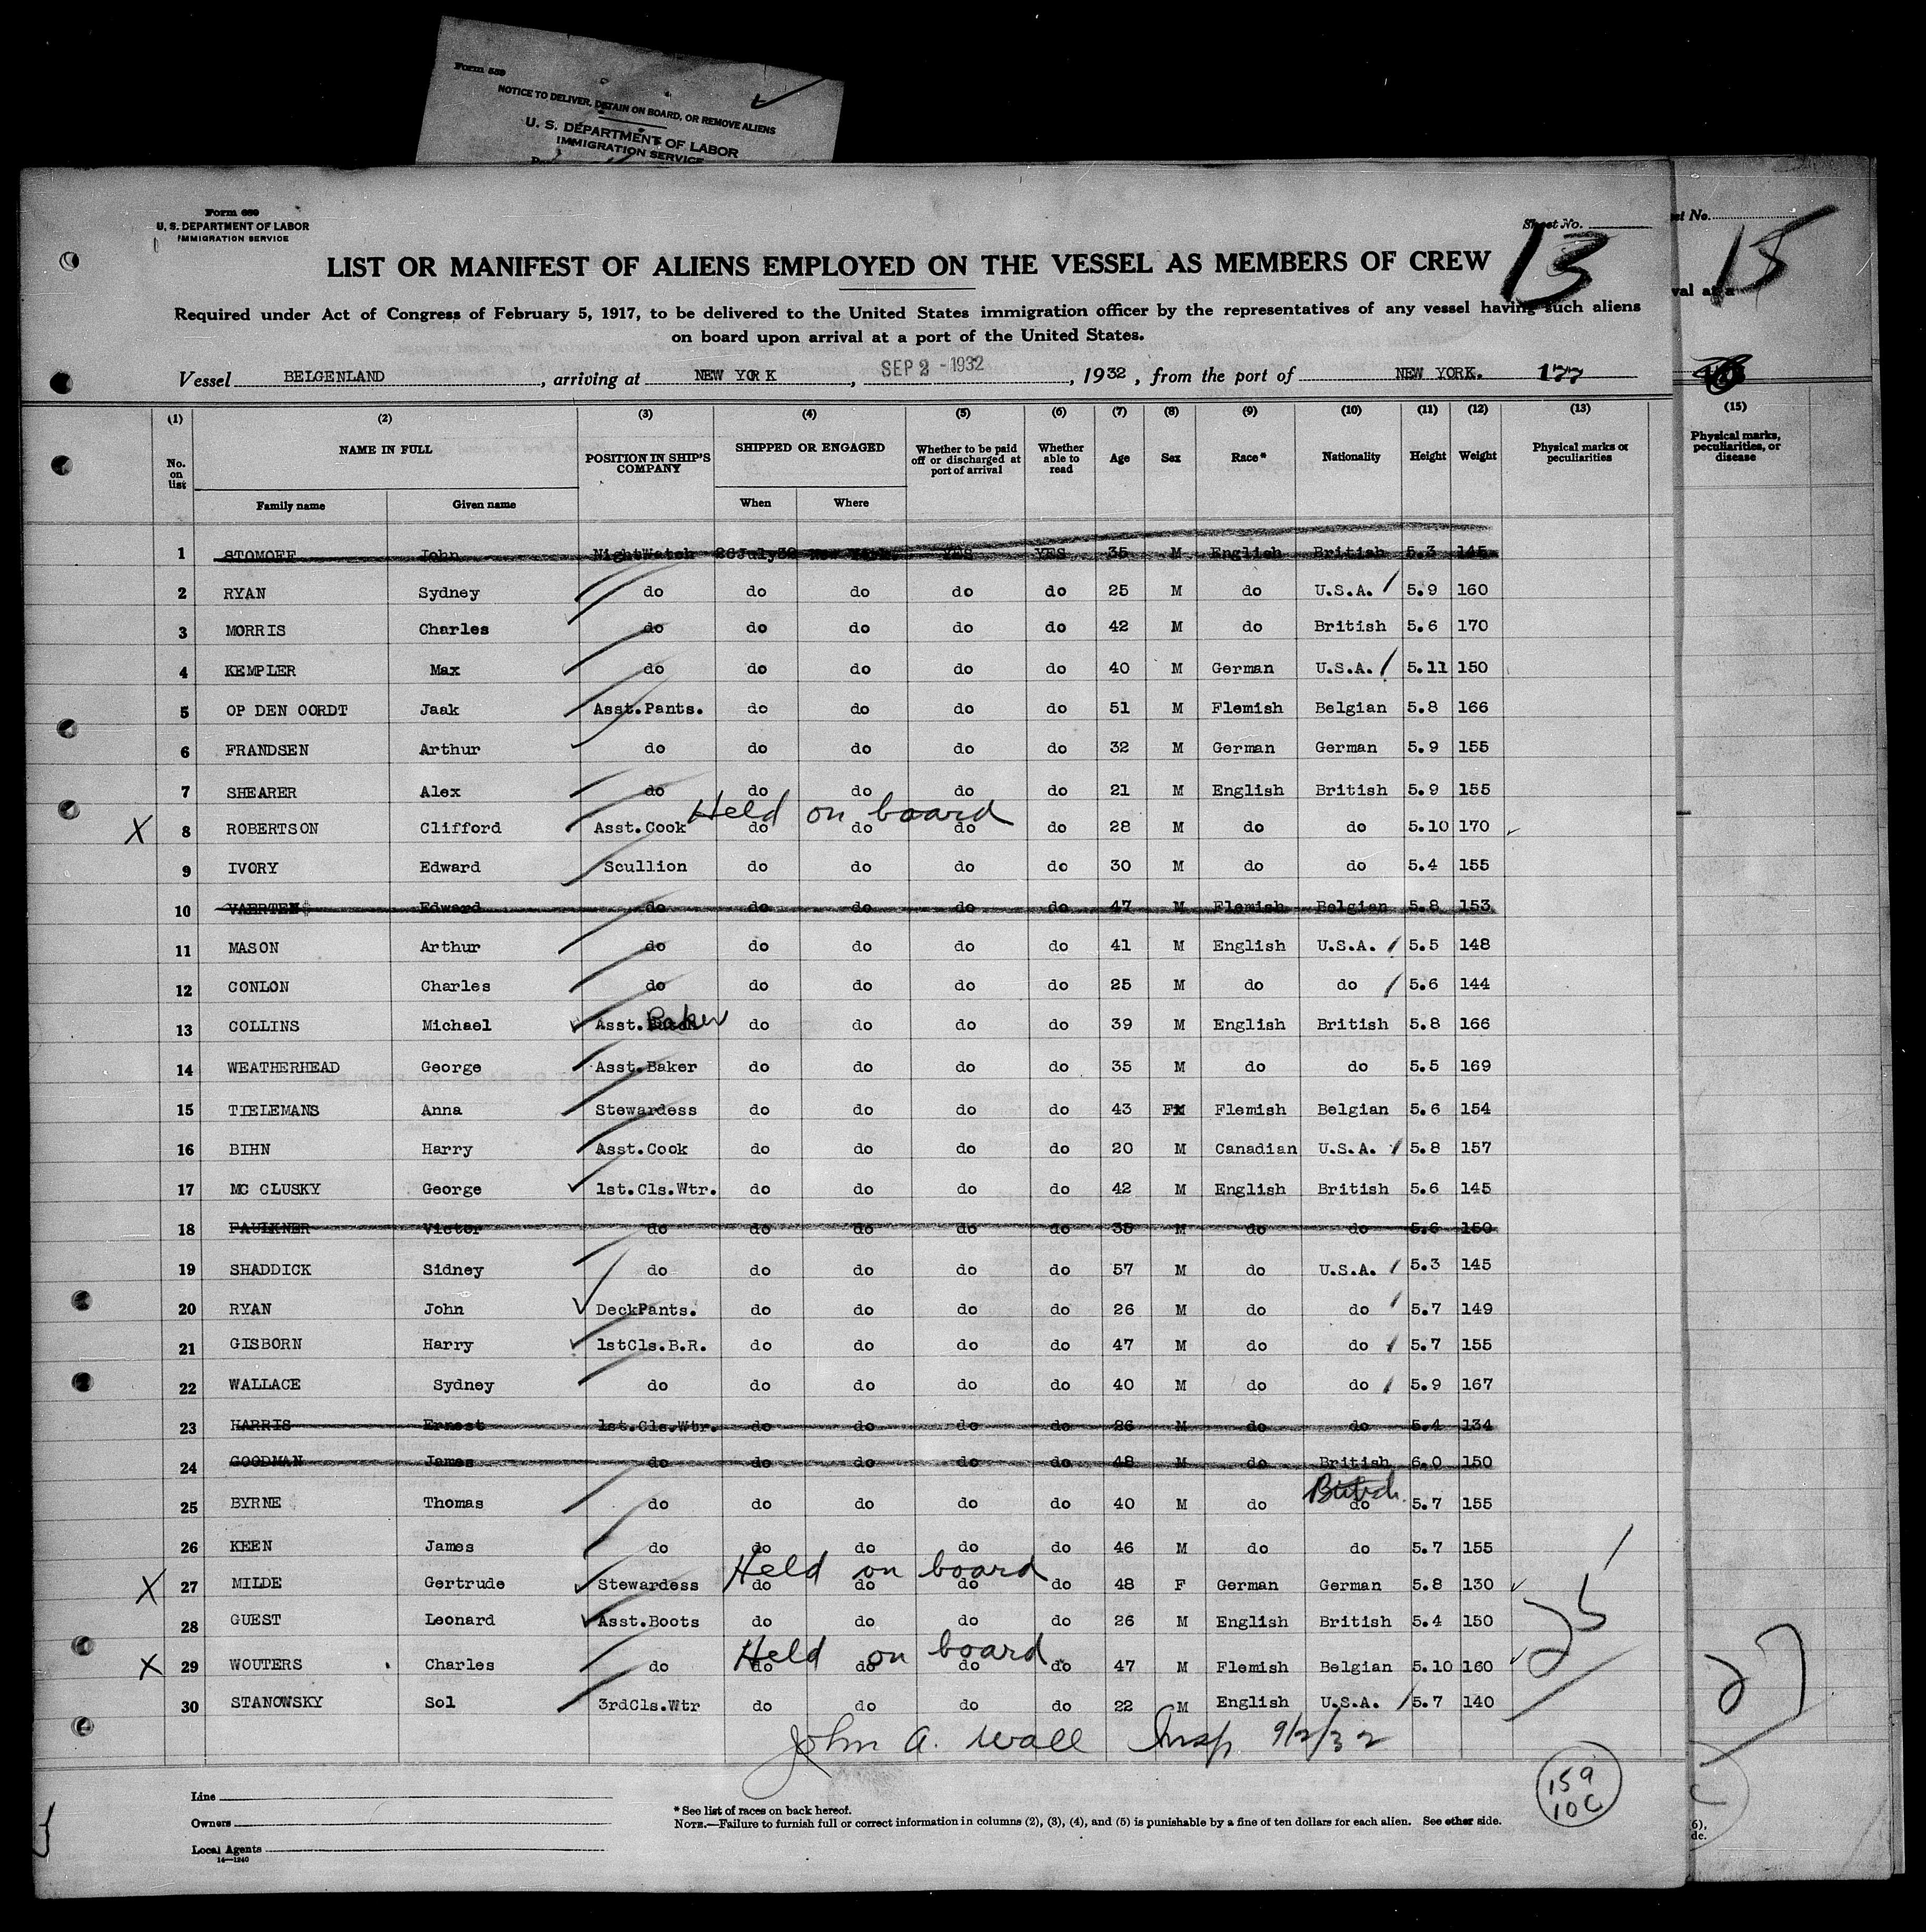 Form 889
NOTICE TO DELIVER, DETAIN ON BOARD, OR REMOVE ALIENS
U. S. DEPARTMENT OF LABOR
IMMIGRATION SERVICE
Form 689
U. S. DEPARTMENT OF LABOR
IMMIGRATION SERVICE
Sheet No.
13
LIST OR MANIFEST OF ALIENS EMPLOYED ON THE VESSEL AS MEMBERS OF CREW
Required under Act of Congress of February 5, 1917, to be delivered to the United States immigration officer by the representatives of any vessel having such aliens
on board upon arrival at a port of the United States.
Vessel BELGENLAND, arriving at NEW YORK, SEP 2 - 1932, 1932, from the port of NEW YORK. 177
(1) (2) (3) (4) (5) (6) (7) (8) (9) (10) (11) (12) (13)
No. on list NAME IN FULL POSITION IN SHIP'S COMPANY SHIPPED OR ENGAGED Whether to be paid off or discharged at port of arrival Whether able to read Age Sex Race* Nationality Height Weight Physical marks or peculiarities
Family name Given name When Where
1 STOMOFF John NightWatch 26July32 New York. YES YES 35 M English British 5.3 145
2 RYAN Sydney do do do do do 25 M do U.S.A. 5.9 160
3 MORRIS Charles do do do do do 42 M do British 5.6 170
4 KEMPLER Max do do do do do 40 M German U.S.A. 5.11 150
5 OP DEN OORDT Jaak Asst.Pants. do do do do 51 M Flemish Belgian 5.8 166
6 FRANDSEN Arthur do do do do do 32 M German German 5.9 155
7 SHEARER Alex do do do do do 21 M English British 5.9 155
Held on board
X 8 ROBERTSON Clifford Asst.Cook do do do do 28 M do do 5.10 170
9 IVORY Edward Scullion do do do do 30 M do do 5.4 155
10 VAERTEN Edward do do do do do 47 M Flemish Belgian 5.8 153
11 MASON Arthur do do do do do 41 M English U.S.A. 5.5 148
12 CONLON Charles do do do do do 25 M do do 5.6 144
13 COLLINS Michael Asst. Baker do do do do 39 M English British 5.8 166
14 WEATHERHEAD George Asst.Baker do do do do 35 M do do 5.5 169
15 TIELEMANS Anna Stewardess do do do do 43 F Flemish Belgian 5.6 154
16 BIHN Harry Asst.Cook do do do do 20 M Canadian U.S.A. 5.8 157
17 MC CLUSKY George 1st.Cls.Wtr. do do do do 42 M English British 5.6 145
18 FAULKNER Victor do do do do do 35 M do do 5.6 150
19 SHADDICK Sidney do do do do do 57 M do U.S.A. 5.3 145
20 RYAN John DeckPants. do do do do 26 M do do 5.7 149
21 GISBORN Harry 1stCls.B.R. do do do do 47 M do do 5.7 155
22 WALLACE Sydney do do do do do 40 M do do 5.9 167
23 HARRIS Ernest 1st.Cls.Wtr. do do do do 26 M do do 5.4 134
24 GOODMAN James do do do do do 48 M do British 6.0 150
British
25 BYRNE Thomas do do do do do 40 M do do 5.7 155
26 KEEN James do do do do do 46 M do do 5.7 155
Held on board
X 27 MILDE Gertrude Stewardess do do do do 48 F German German 5.8 130
28 GUEST Leonard Asst.Boots do do do do 26 M English British 5.4 150
Held on board
X 29 WOUTERS Charles do do do do do 47 M Flemish Belgian 5.10 160
30 STANOWSKY Sol 3rdCls.Wtr do do do do 22 M English U.S.A. 5.7 140
25
John A. Wall Insp 9/2/32
159
10C
Line
Owners
Local Agents
14—1240
* See list of races on back hereof.
NOTE.—Failure to furnish full or correct information in columns (2), (3), (4), and (5) is punishable by a fine of ten dollars for each alien. See other side.
et No.
15
val at a
(15)
Physical marks,
peculiarities, or
disease
27
6),
de.